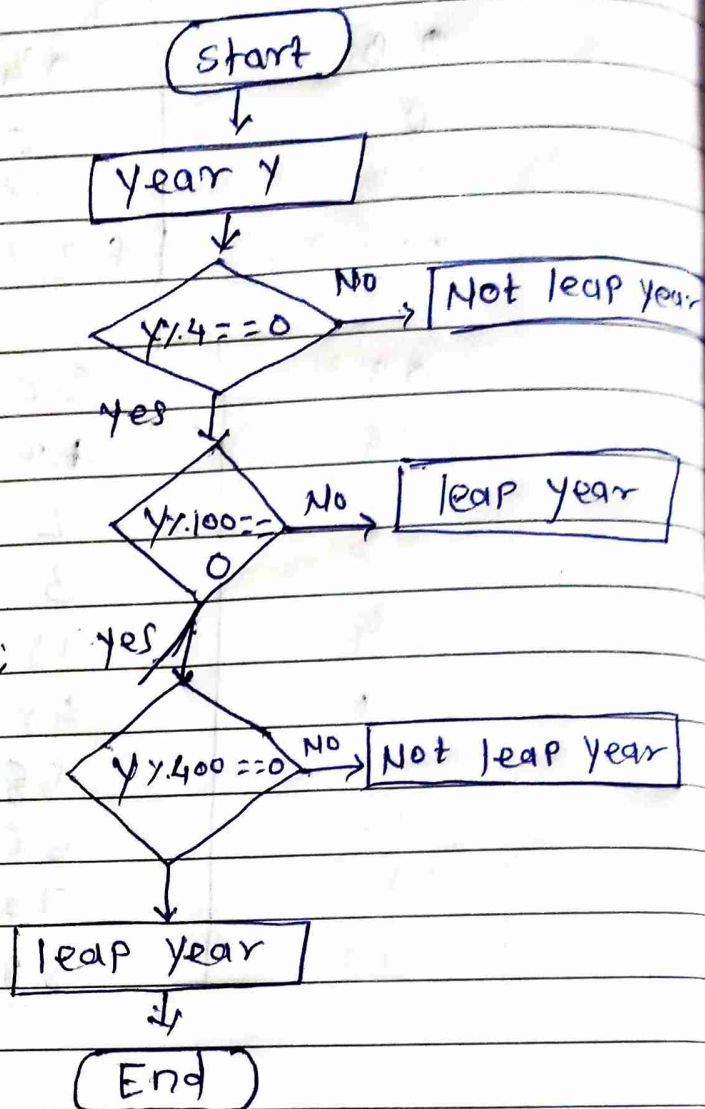 Start
Year Y
Y%4==0
No
Not leap year
yes
Y%100==
0
No
leap year
yes
Y%400==0
No
Not leap year
leap year
End